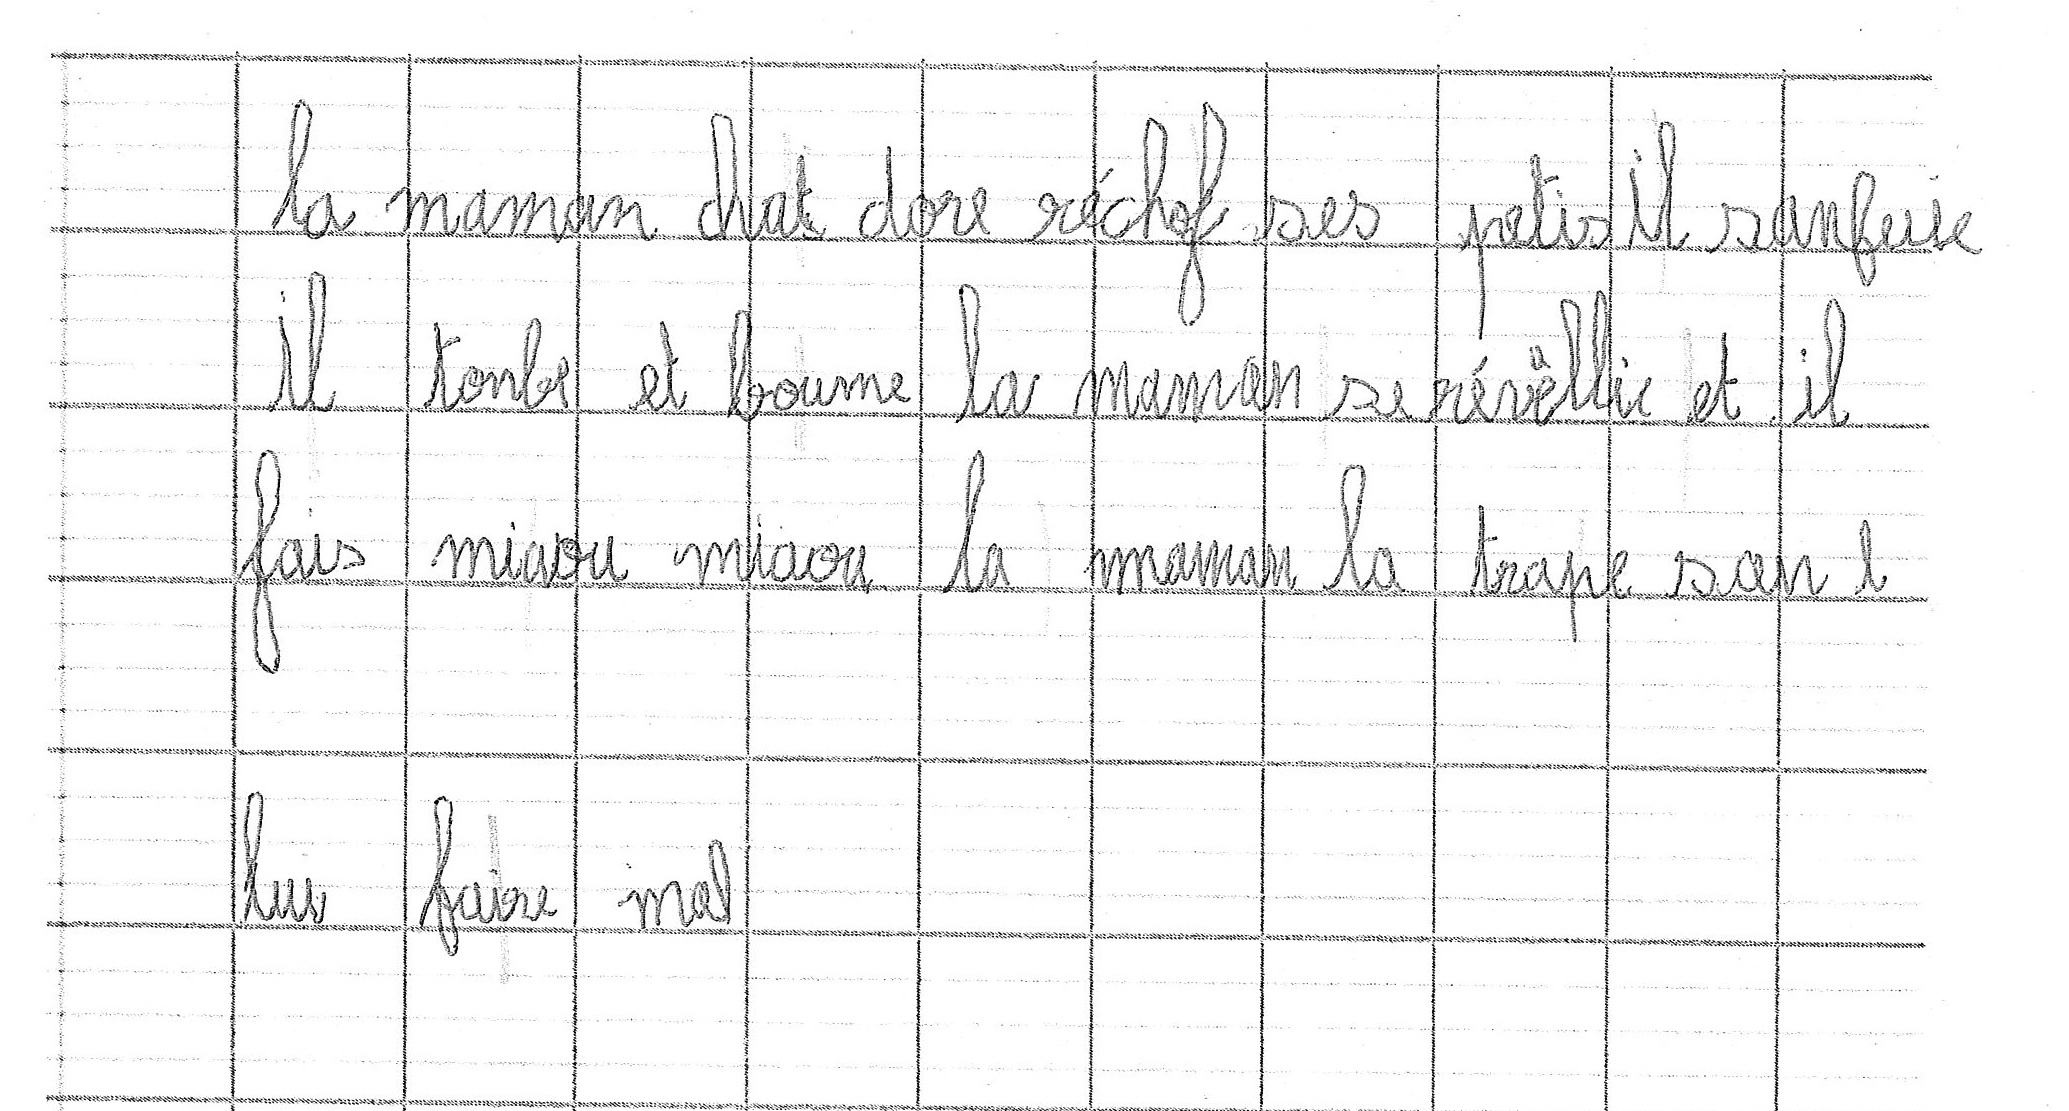 la maman chat dore réchof ses petis il sanfuie
il tonbe et boume la maman se révëllie et il
fais miaou miaou la maman la trape san l
lui faire mal